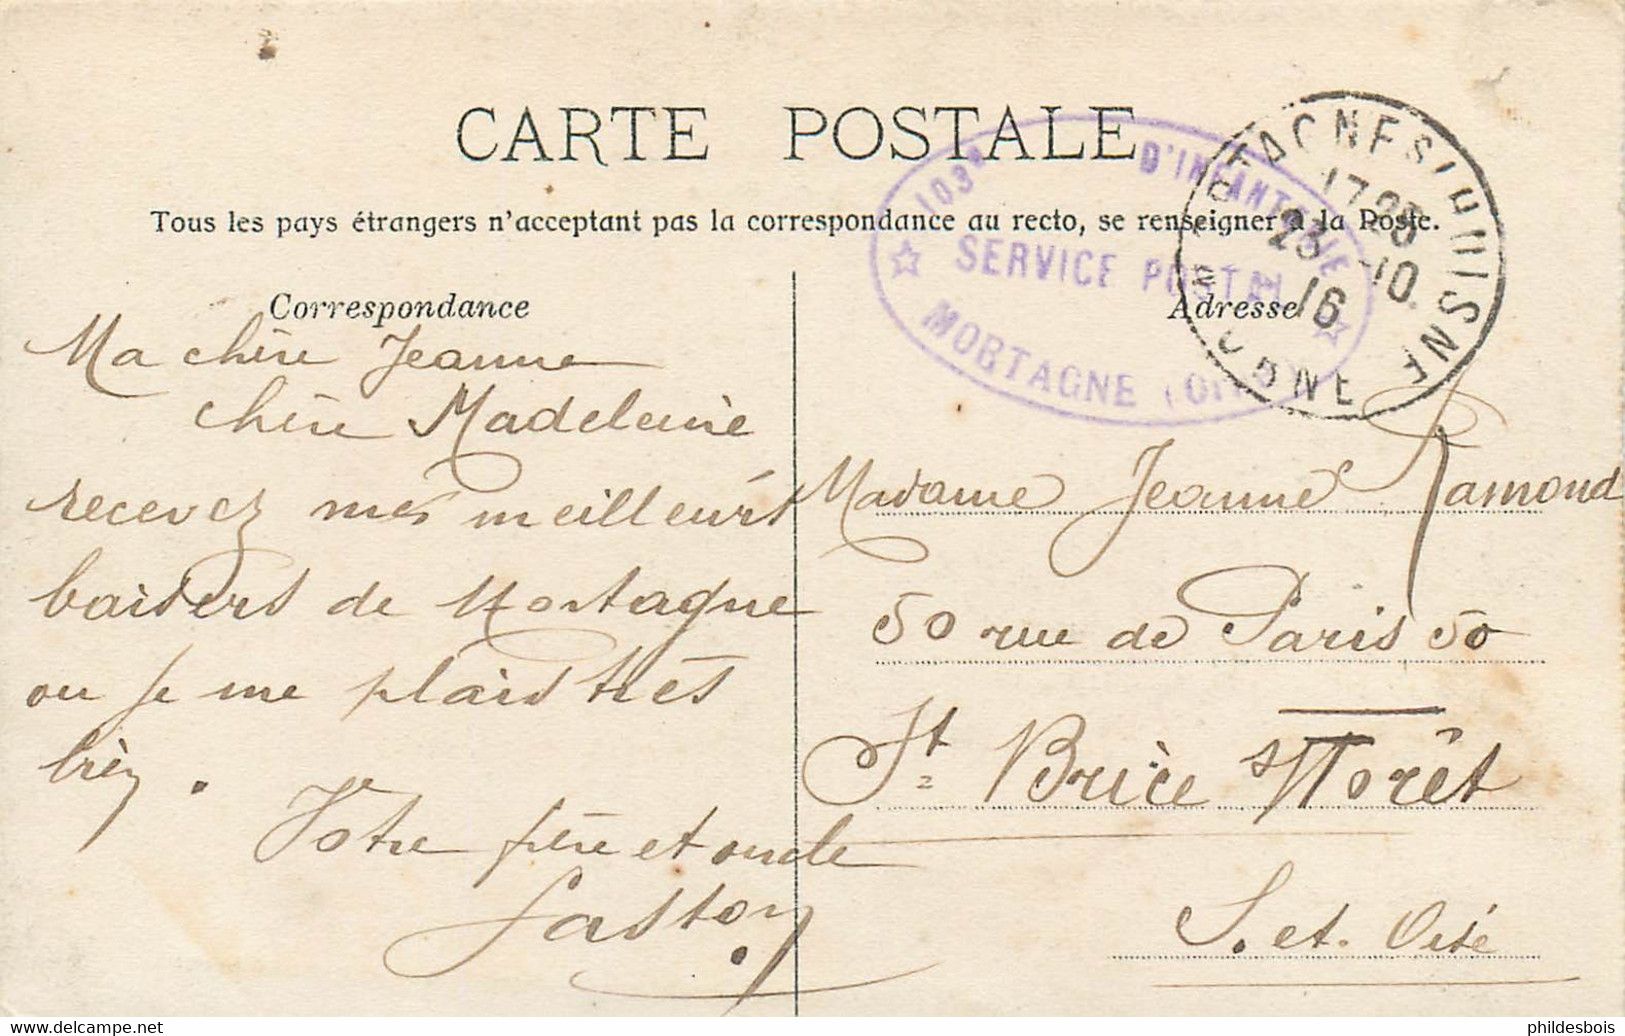 CARTE POSTALE
Tous les pays étrangers n'acceptant pas la correspondance au recto, se renseigner à la Poste.
Correspondance
Ma chère Jeanne
chère Madeleine
recevez mes meilleurs
baisers de Mortagne
ou je me plais très
bien.
Votre frère et oncle
Gaston
Adresse
Madame Jeanne Ramond
50 rue de Paris 50
St Brice s/ Forêt
S. et. Oise
103e D'INFANTERIE
SERVICE POSTAL
MORTAGNE (ORNE)
17 25
23 -10.
16
ORNE
phildesbois